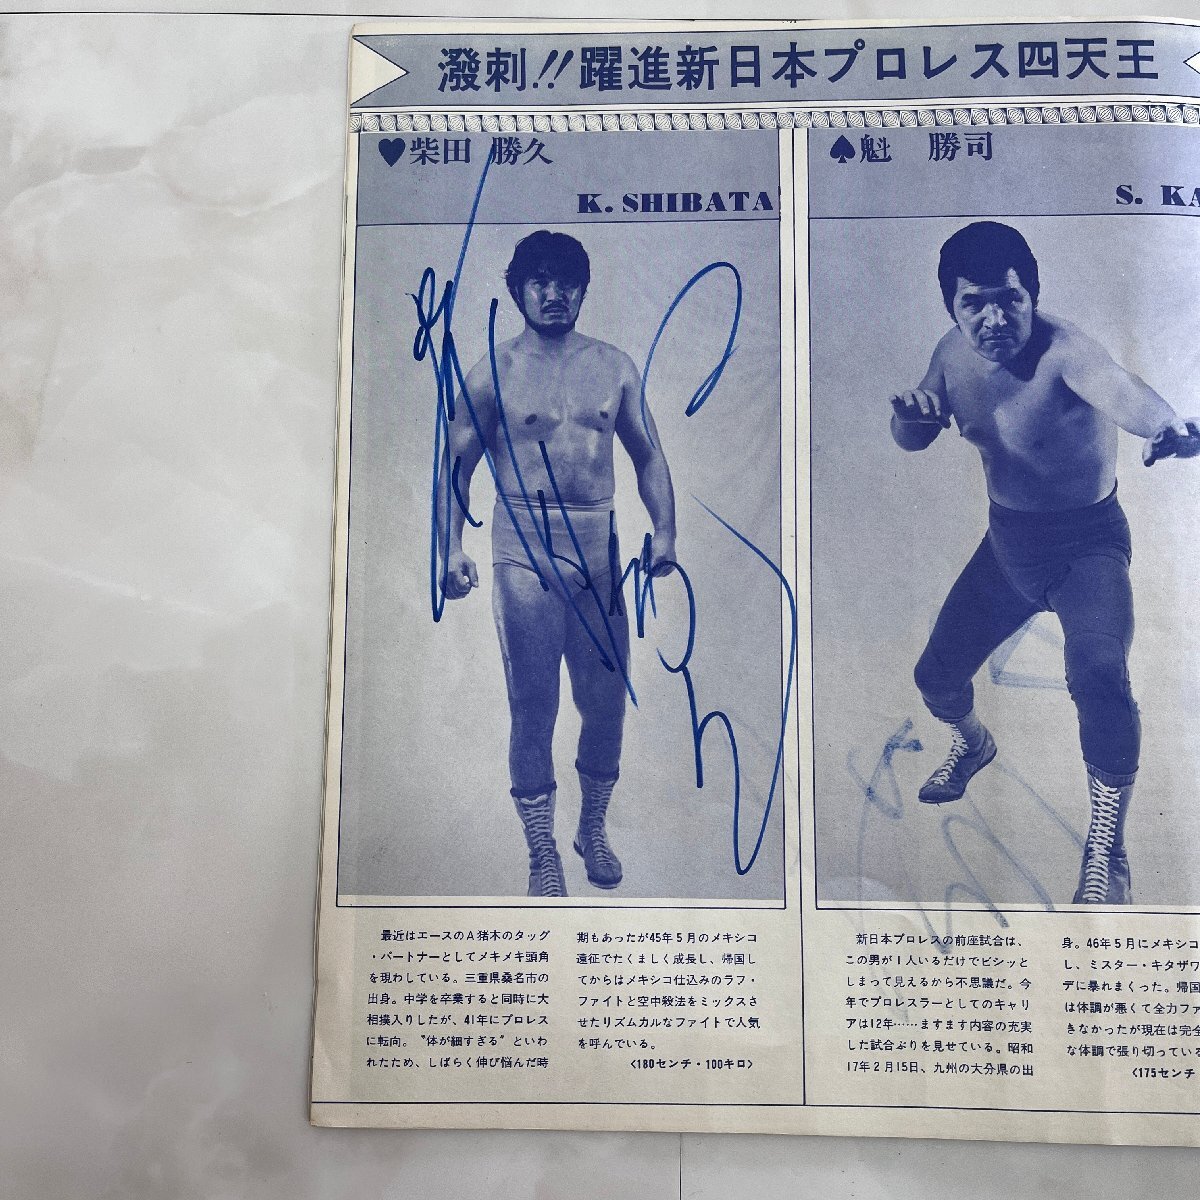 潑刺!!躍進新日本プロレス四天王
♥柴田 勝久
K. SHIBATA
最近はエースのA猪木のタッグ
・パートナーとしてメキメキ頭角
を現わしている。三重県桑名市の
出身。中学を卒業すると同時に大
相撲入りしたが、41年にプロレス
に転向。〝体が細すぎる〟といわ
れたため、しばらく伸び悩んだ時
期もあったが45年5月のメキシコ
遠征でたくましく成長し、帰国し
てからはメキシコ仕込みのラフ・
ファイトと空中殺法をミックスさ
せたリズムカルなファイトで人気
を呼んでいる。
〈180センチ・100キロ〉
♠魁 勝司
S. KA
新日本プロレスの前座試合は、
この男が1人いるだけでビシッと
しまって見えるから不思議だ。今
年でプロレスラーとしてのキャリ
アは12年……ますます内容の充実
した試合ぶりを見せている。昭和
17年2月15日、九州の大分県の出
身。46年5月にメキシコ
し、ミスター・キタザワ
デに暴れまくった。帰国
は体調が悪くて全力ファ
きなかったが現在は完全
な体調で張り切っている
〈175センチ・